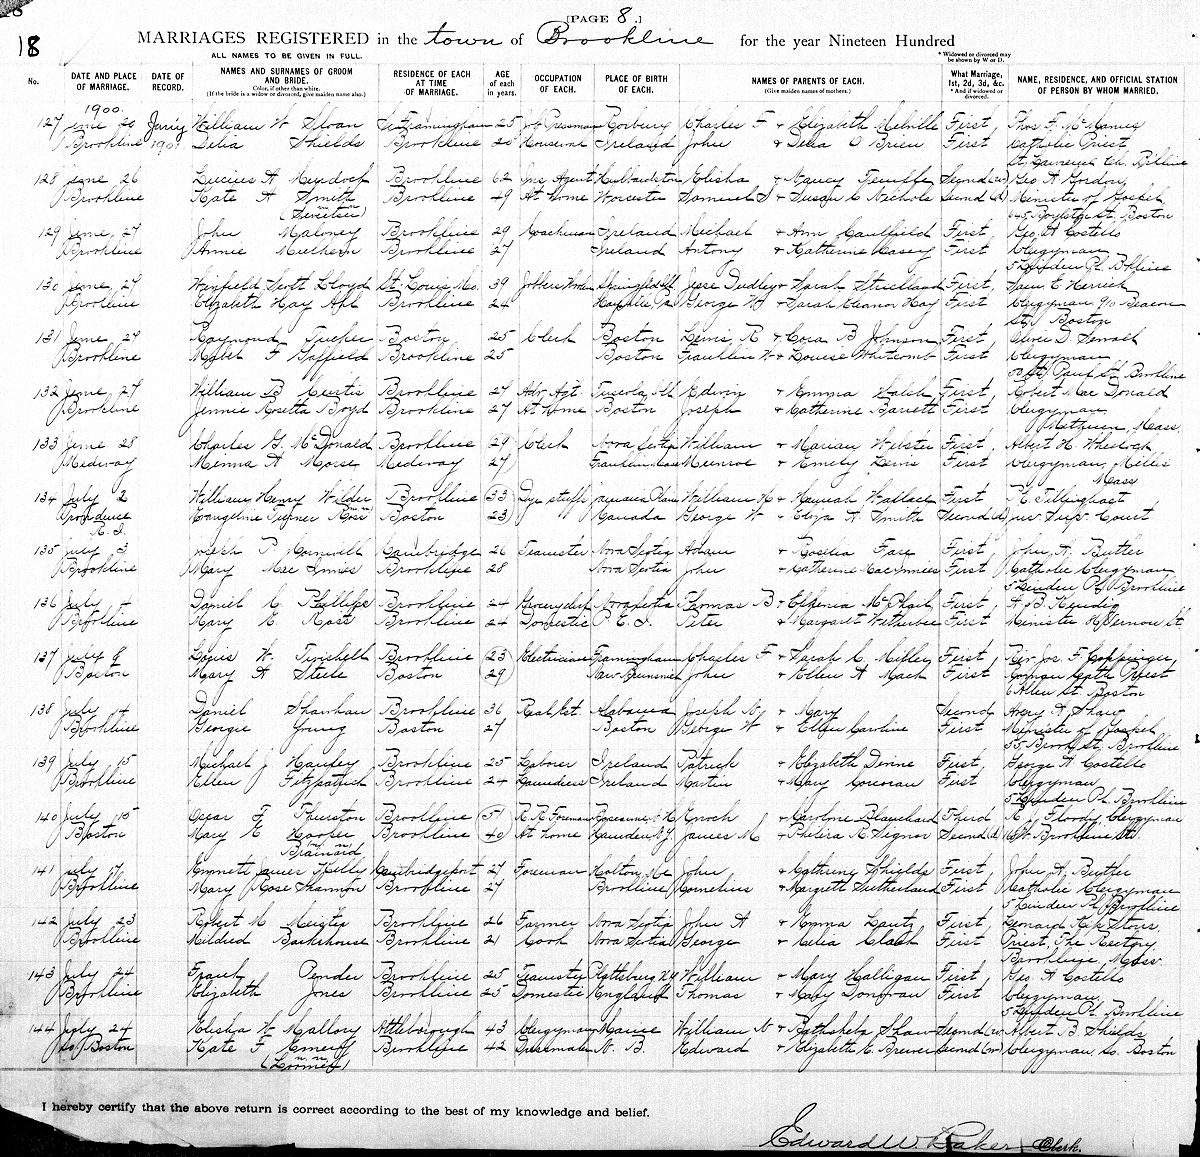 18
[PAGE 8.]
18 MARRIAGES REGISTERED in the town of Brookline for the year Nineteen Hundred
ALL NAMES TO BE GIVEN IN FULL.
* Widowed or divorced may be shown by W or D.
No. DATE AND PLACE OF MARRIAGE. DATE OF RECORD. NAMES AND SURNAMES OF GROOM AND BRIDE. Color, if other than white. (If the bride is a widow or divorced, give maiden name also.) RESIDENCE OF EACH AT TIME OF MARRIAGE. AGE of each in years. OCCUPATION OF EACH. PLACE OF BIRTH OF EACH. NAMES OF PARENTS OF EACH. (Give maiden names of mothers.) What Marriage, 1st, 2d, 3d, &c. * And if widowed or divorced. NAME, RESIDENCE, AND OFFICIAL STATION OF PERSON BY WHOM MARRIED.
1900.
127 June Jan'y William W. Sloan So Framingham 25 Job Pressman Roxbury Charles F & Elizabeth Melville First, Thos F. McManus
Brookline 1901 Delia Shields Brookline Ireland John & Delia O'Brien First Catholic Priest
128 June 26 Lucius A Murdock Brookline 62 Ins Agent Hubbardston Elisha & Nancy Second (w) Geo A Gordon
Brookline Kate A Smith Brookline 49 At Home Worcester Samuel S & Susan C Nichols Second Minister of Gospel
645 Boylston St, Boston
129 June, 27 John Maloney Brookline 29 Coachman Ireland Michael & Ann Caulfield First, Geo. A Costello
Brookline Annie Brookline 27 Ireland Antony & Katherine Casey First Clergyman
5 Linden Pl. Bkline
130 June, 27 Winfield Scott Lloyd St. Louis, Mo. 39 Springfield Jesse Dudley & Sarah Strickland First, Sam. E Herrick
Brookline Elizabeth Hay Brookline 24 George W & Sarah Eleanor Hay First Clergyman, 90 Beacon
St, Boston
131 June 27 Raymond Tucker Boston 25 Clerk Boston Lewis R & Cora B Johnson First, Oliver D Sewall
Brookline Mabel F Brookline 25 Boston Franklin W & Louise Whitcomb First Clergyman
St Paul St. Brookline
132 June 27 William B Curtis Brookline 27 Adv. Agt Tuscola, Ill Edwin & Emma Walsh First, Robert Mac Donald
Brookline Jennie Rosetta Boyd Brookline 27 At home Boston Joseph & Catherine Barrett First Clergyman
Methuen, Mass.
133 June 28 Charles G. McDonald Brookline 29 Clerk Nova Scotia William & Marian Webster First, Albert H. Wheelock
Medway A Morse Medway 27 Franklin Mass Munroe & Emely First Clergyman, Millis
Mass
134 July 2 William Henry Wilder Brookline 33 Dye stuffs Jamaica Plain William H & Hannah Wallace First P. Tillinghast
Providence Evangeline Turner Ross Boston 23 Canada George W & Eliza A Smith Second (d) Jus. Sup. Court
R. I.
135 July 3 Joseph P Cambridge 26 Teamster Nova Scotia Adam & Rosilia First, John A. Butler
Brookline Mary Mac Innis Brookline 28 Nova Scotia John & Catherine MacInnes First Catholic Clergyman
5 Linden Pl, Brookline
136 July 4 Daniel C Phillips Brookline 24 Nova Scotia Thomas B & McPhail, First,
Brookline Mary E Ross Brookline 24 Domestic P. E. I. Peter & Margaret Witherbee First Minister
137 July 8 Louis W. Twichell Brookline 23 Electrician Framingham Charles F & Sarah C Miller First, Rev. Jos. F. Coppinger,
Boston Mary A Steele Boston 29 New Brunswick John & Ellen A Mack First Roman Cath. Priest
Allen St. Boston
138 July 4 Daniel Brookline 36 Real Est. Alabama Joseph N & Mary Second Avery A. Shaw
Brookline Georgie Young Boston 27 Boston George W & Ellen Caroline First Minister of Gospel
Brook St, Brookline
139 July 15 Michael J Brookline 25 Laborer Ireland Patrick & Elizabeth Devine First, George A Costello
Brookline Ellen Fitzpatrick Brookline 24 Laundress Ireland Martin & Mary Corcoran First Clergyman
5 Linden Pl. Brookline
140 July 15 Oscar F Thurston Brookline 51 R. R. Foreman Enoch & Caroline Blanchard Third R J Floody, Clergyman
Boston Mary E Hooper Brookline 40 At home James M & Signor Second (d) W. Brookline St.
Brainard
141 July 17 Emmett James Kelly Cambridgeport 27 Foreman John & Cathrine Shields First, John A, Butler
Brookline Mary Rose Shannon Brookline 27 Brookline Cornelius & Margett Sutherland First Catholic Clergyman
5 Linden Pl, Brookline
142 July 23 Robert M Brookline 26 Farmer Nova Scotia John A & Emma Lantz First, Leonard Storrs,
Brookline Mildred Backhouse Brookline 21 Cook Nova Scotia George & Celia Clark First Priest, The Rectory
Brookline, Mass.
143 July 24 Frank Pender Brookline 25 Teamster Plattsburg N.Y. William & Mary Halligan First, Geo. A Costello
Brookline Elizabeth Jones Brookline 25 Domestic England Thomas & Mary Donovan First Clergyman,
5 Linden Pl. Brookline
144 July 24 Elisha W. Mallory Attleborough 43 Clergyman Maine William N & Bathsheba Shaw Second (w) Albert B Shields
So. Boston Kate F. Emery Brookline 42 Dressmaker N. B. Edward & Elizabeth E. Brewer Second (w) Clergyman, So. Boston
I hereby certify that the above return is correct according to the best of my knowledge and belief.
Edward W. Baker Clerk.